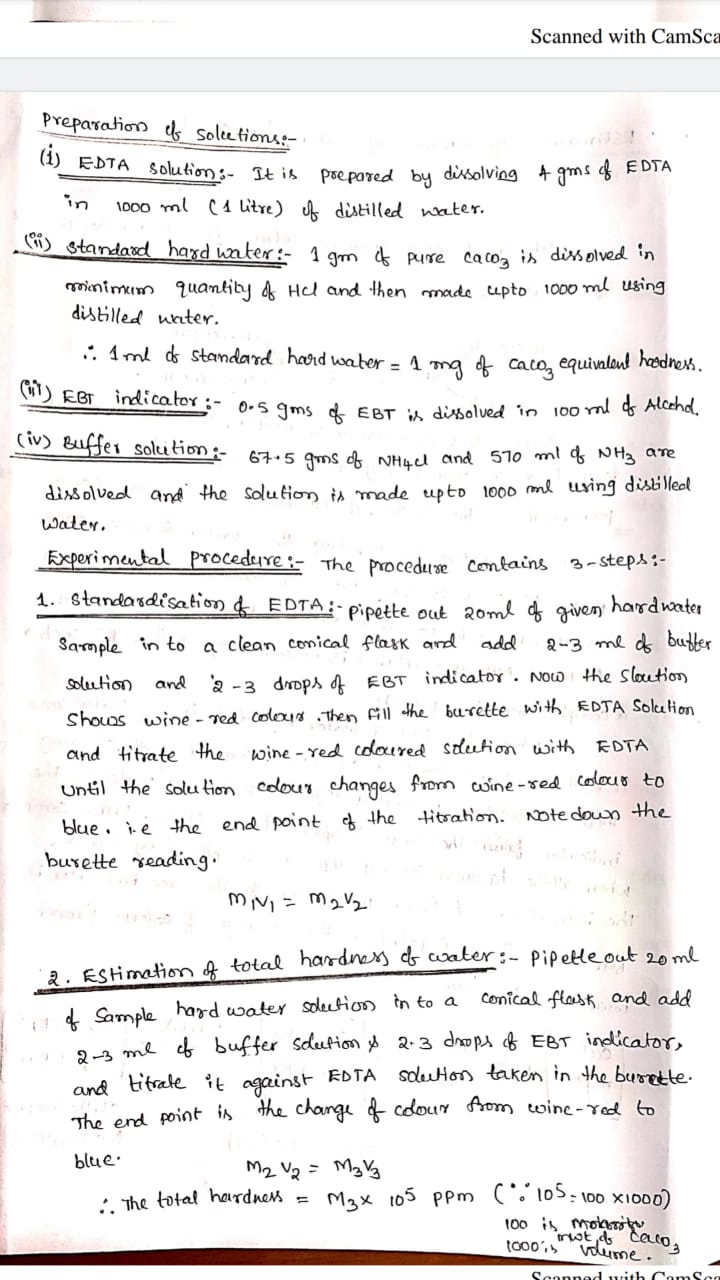 Scanned with CamSca
Preparation of solutions:-
(i) EDTA solution:- It is prepared by dissolving 4 gms of EDTA
in 1000 ml (1 litre) of distilled water.
(ii) standard hard water:- 1 gm of pure caco3 is dissolved in
minimum quantity of Hcl and then made upto 1000 ml using
distilled water.
∴ 1ml of standard hard water = 1 mg of caco3 equivalent hardness.
(iii) EBT indicator:- 0.5 gms of EBT is dissolved in 100 ml of Alcohol.
(iv) Buffer solution:- 67.5 gms of NH4cl and 570 ml of NH3 are
dissolved and the solution is made upto 1000 ml using distilled
water.
Experimental procedure:- The procedure contains 3-steps:-
1. Standardisation of EDTA:- pipette out 20ml of given hard water
Sample in to a clean conical flask and add 2-3 ml of buffer
solution and 2-3 drops of EBT indicator. Now the Sloution
Shows wine-red colour. Then fill the burette with EDTA Solution
and titrate the wine-red coloured solution with EDTA
until the solution colour changes from wine-red colour to
blue. i.e the end point of the titration. Note down the
burette reading.
M1V1 = M2V2
2. Estimation of total hardness of water:- Pipette out 20 ml
of Sample hard water solution in to a conical flask and add
2-3 ml of buffer solution & 2-3 drops of EBT indicator,
and titrate it against EDTA solution taken in the burette.
The end point is the change of colour from wine-red to
blue.
M2 V2 = M3V3
∴ The total hardness = M3 x 10^5 ppm (∵ 10^5 = 100 x1000)
100 is
mwt of caco3
1000 is volume.
Scanned with CamSca